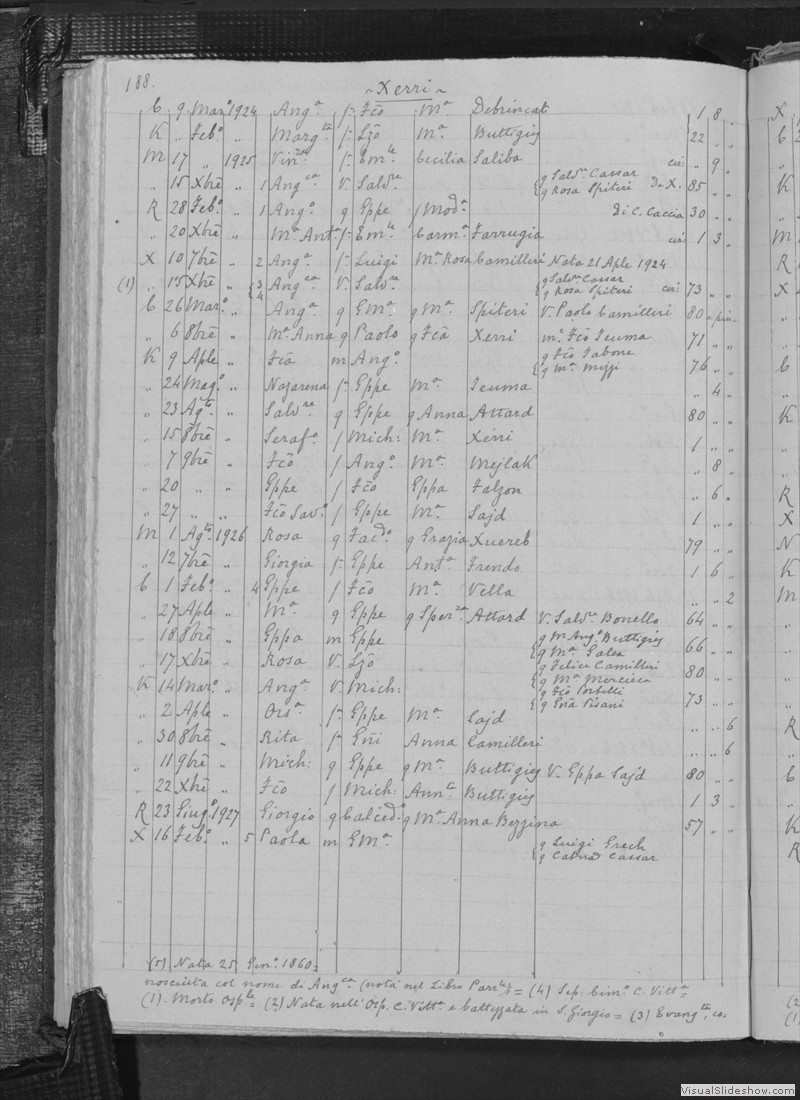 188.
~ Xerri ~
C 9 Marº 1924 Angª f. Fcō Mª Debrincat 1 8 "
K " Febº " Margta f. Ljō Mª Buttigieg 22 " "
M 17 " 1925 Vinza f. Emle Cecilia Saliba cir: " 9 "
" 15 Xbrē " 1 Angca V. Salvre { g Salvre Cassar
g Rosa Spiteri De X. 85 " "
R 28 Febº " 1 Angº g Gppe f Modª Di C. Caccia 30 " "
" 20 Xbrē " Mª Antª f. Emle Carmª Farrugia cir: 1 3 "
X 10 7brē " 2 Angª f. Luigi Mª Rosa Camilleri Nata 21 Aple 1924
(1) " 15 Xbrē " {3 4 Angca V. Salvre { g Salvre Cassar
g Rosa Spiteri cir: 73 " "
C 26 Marº " Angª g GMª g Mª Spiteri V. Paolo Camilleri 80 e più "
" 6 8brē " Mª Anna g Paolo g Fcā Xerri m. Fcō Teuma 71 " "
K 9 Aple " Fcā m Angº { g Fcō Tabone
g Mª Mizzi 76 " "
" 24 Magº " Nazarena f. Gppe Mª Teuma " 4 "
" 23 Agto " Salvre g Gppe g Anna Attard 80 " "
" 15 8brē " Serafº f Mich: Mª Xerri 1 " "
" 7 9brē " Fcō f Angº Mª Mejlak " 8 "
" 20 " " Gppe f Fcō Gppa Falzon " 6 "
" 27 " " Fcō Savº f Gppe Mª Sajd 1 " "
M 1 Agto 1926 Rosa g g Grazia Xuereb 79 " "
" 12 7brē " Giorgia f. Gppe Antª Frendo 1 6 "
C 1 Febº " 4 Gppe f Fcō Mª Vella " " 2
" 27 Aple " Mª g Gppe g Sperza Attard V. Salvre Bonello 64 " "
" 18 8brē " Gppa m Gppe { g M Angº Buttigieg
g Mª Galea 66 " "
" 17 Xbrē " Rosa V. Ljō { g Felice Camilleri
g Mª Mercieca 80 " "
K 14 Marº " Angª V. Mich: { g Fcō Portelli
g Gña Pisani 73 " "
" 2 Aple " Orsª f. Gppe Mª Sajd " " 6
" 30 8brē " Rita f. Gñi Anna Camilleri " " 6
" 11 9brē " Mich: g Gppe g Mª Buttigieg V. Gppa Sajd 80 " "
" 22 Xbrē " Fcō f Mich: Annta Buttigieg 1 3 "
R 23 Giugº 1927 Giorgio g Calcedº g Mª Anna Bezzina 57 " "
X 16 Febº " 5 Paola m GMª { g Luigi Grech
g Cassar
(5) Nata 25 Genº. 1860=
nosciuta col nome di Angca (nota nel Libro Parrle) = (4) Sep: Cimº C. Vittª=
(1). Morto Osple = (2) Nata nell' Osp. C. Vittª e battezzata in S. Giorgio = (3) Evangta, co-
VisualSlideshow.com